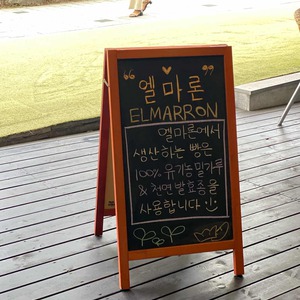 “엘마론”
ELMARRON
엘마론에서
생산하는 빵은
100% 유기농 밀가루
& 천연발효종을
사용합니다